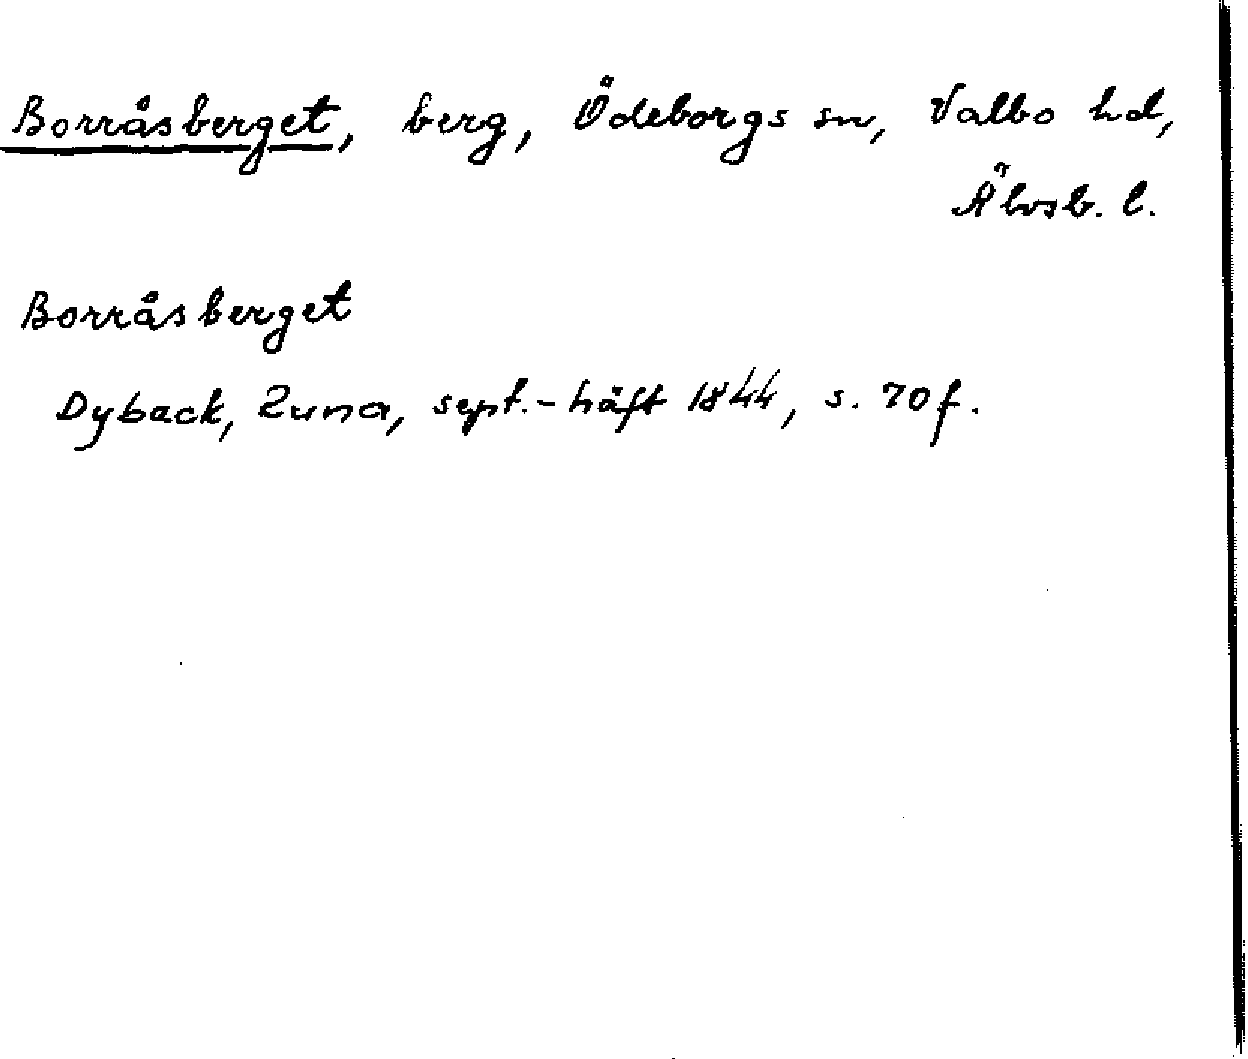 Borråsberget, berg, Ödeborgs sn, Valbo hd,
Älvsb. l.
Borråsberget
Dyback, Runa, sept.-häft 1844, s. 70 f.